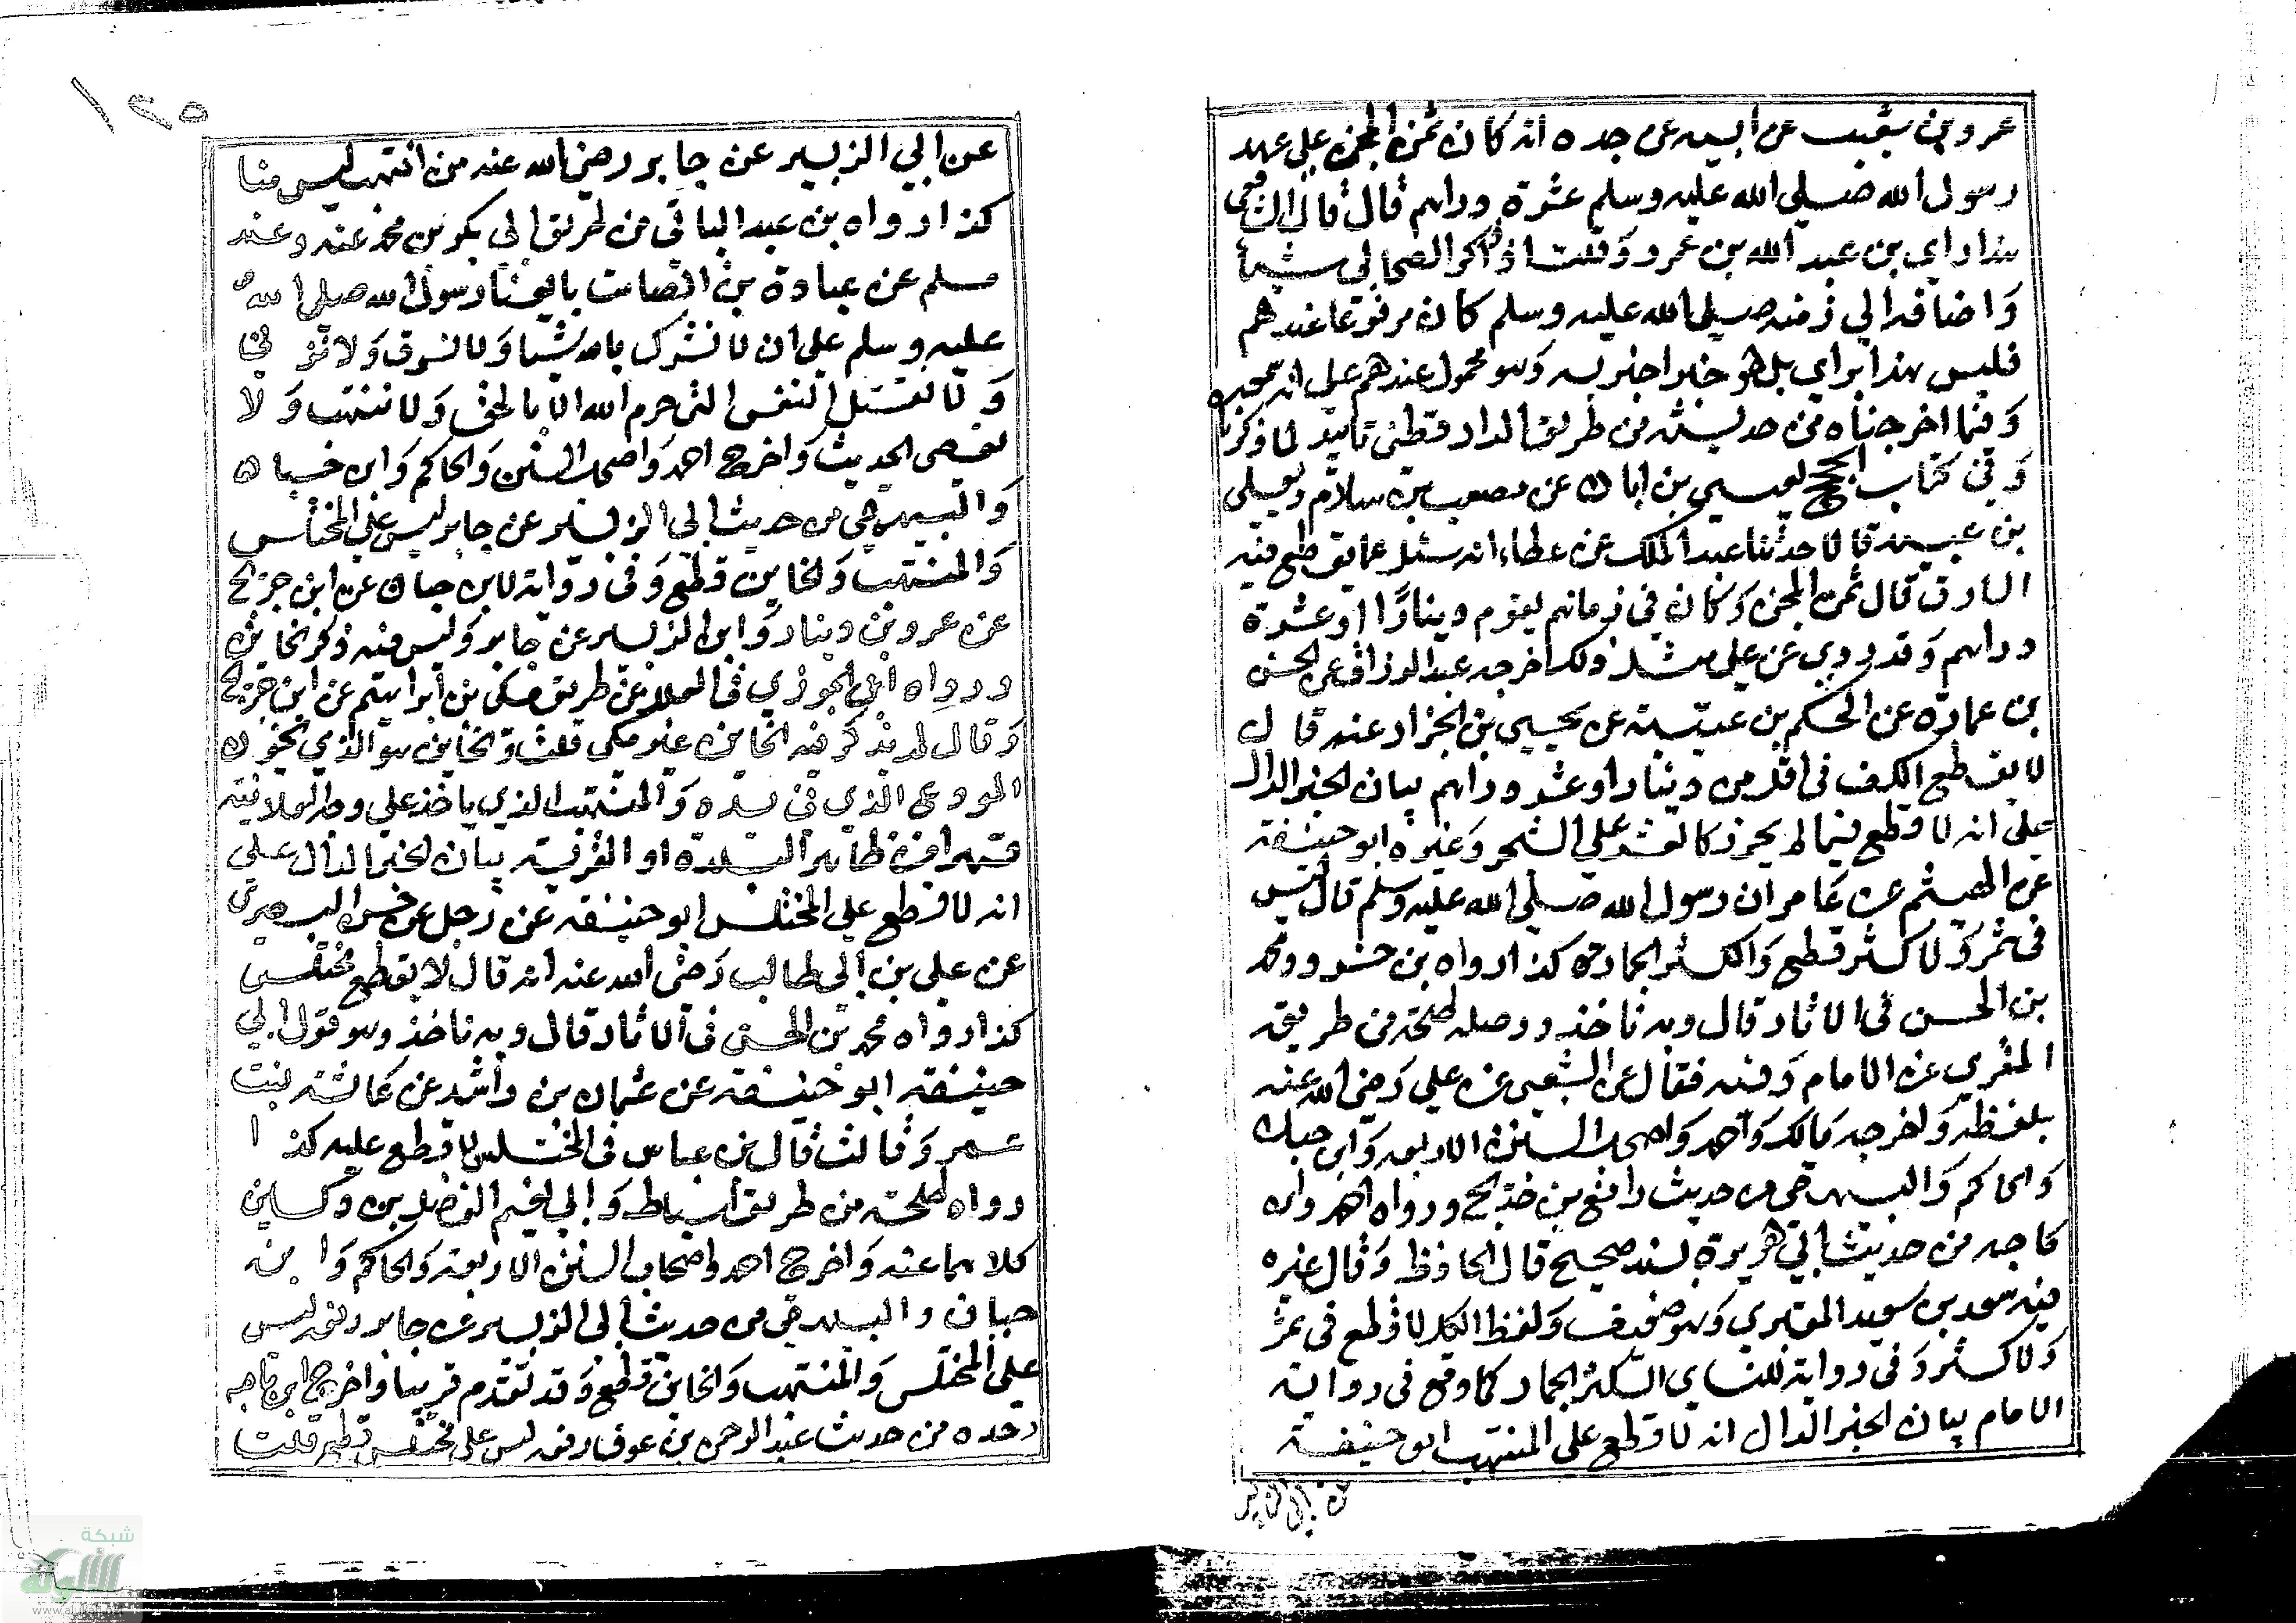 عمرو بن شعيب عن ابيه عن جده انه كان ثمن المجن علي عهد
رسول الله صلي الله عليه وسلم عشرة دراهم قال قال الشافعي
هذا راي بن عبد الله بن عمرو وقلت اذا ذكر الصحابي شيئا
وَاضافه الي زمنه صلي الله عليه وسلم كان مرفوعا عندهم
فليس هذا براي بل هو خبر اخبر به وَهو محمول عندهم علي انه سمعه
وَفيما اخرجناه من حديثه من طريق الدارقطني تاييد لما ذكرنا
وَفي كتاب الحجج لعيسي بن ابان عن مصعب بن سلام ويعلي
بن عبيد قالا حدثنا عبد الملك عن عطاء انه سئل عما يقطع فيه
السارق قال ثمن المجن وَكان في زمانهم يقوم دينارًا او عشرة
دراهم وَقد روي عن علي مثل ذلك اخرجه عبد الرزاق عن الحسن
بن عمارة عن الحكم بن عتيبة عن يحيي بن الجزار عنه قال
لا يقطع الكف في اقل من دينار او عشر دراهم بيان الخبر الدال
علي انه لا قطع فيما لم يحرز كالثمر علي الشجر وَغيره ابو حنيفة
عن الهيثم عن عامر ان رسول الله صلي الله عليه وسلم قال ليس
في ثمر وَلا كثر قطع وَالكثر الجمار كذا رواه بن خسرو ومحمد
بن الحسن في الاثار قال وبه ناخذ ووصله طلحة من طريق
المقري عن الامام وَفيه فقال عن الشعبي عن علي رَضي الله عنه
بلفظه وَاخرجه مَالك وَاحمد وَاصحاب السنن الاربعه وَابن حبان
وَالحاكم وَالبيهقي من حديث رافع بن خديج ورواه احمد وابن
مَاجه من حديث ابي هريرة بسند صحيح قال الحافظ وَقال غيره
فيه سعد بن سعيد المقبري وَهو ضعيف وَلفظ الكل لا قطع في ثمر
وَلا كثر وَفي رواية للنساي الكثر الجمار كما وقع في رواية
الامام بيان الخبر الدال انه لا قطع علي المنتهب ابو حنيفة
عن ابي الزبير
١٢٥
عن ابي الزبير عن جابر رضي الله عنه من انتهب ليس منا
كذا رواه بن عبد الباقي من طريق ابي بكر بن محمد عنه وعند
مسلم عن عبادة بن الصامت بايعنا رسول الله صلي الله
عليه وسلم علي ان لا نشرك بالله شيئا وَلا نسرق وَلا نزني
وَلا نقتل النفس التي حرم الله الا بالحق وَلا ننتهب وَلا
نعصي الحديث وَاخرج احمد وَاصحاب السنن وَالحاكم وَابن حبان
وَالبيهقي من حديث ابي الزبير عن جابر ليس علي المختلس
وَالمنتهب وَالخاين قطع وَفي رواية لابن حبان عن ابن جريج
عن عمرو بن دينار وَابي الزبير عن جابر وَليس فيه ذكر الخاين
ورواه ابن الجوزي في العلل من طريق مكي بن ابراهيم عن ابن جريج
وَقال لم يذكر فيه الخاين غير مكي قلت وَالخاين هو الذي يخون
المودع الذي في يده وَالمنتهب الذي ياخذ علي وجه العلانية
قهرا في ظاهر البلدة او القرية بيان الخبر الدال علي
انه لا قطع علي المختلس ابو حنيفه عن رجل عن حسن البصري
عن علي بن ابي طالب رَضي الله عنه انه قال لا يقطع مختلس
كذا رواه محمد بن الحسن في الاثار قال وبه ناخذ وهو قول ابي
حنيفة ابو حنيفة عن عثمان بن راشد عن عَائشة بنت
عمر وَقالت قال بن عباس في المختلس لا قطع عليه كذا
رواه طلحة من طريق اسباط وَابي نعيم الفضل بن دكين
كلاهما عنه وَاخرج احمد وَاصحاب السنن الاربعة وَالحاكم وَابن
حبان والبيهقي من حديث ابي الزبير عن جابر رفعه ليس
علي المختلس وَالمنتهب وَالخاين قطع وَقد تقدم قريبا وَاخرج ابن ماجه
وحده من حديث عبد الرحمن بن عوف رفعه ليس علي مختلس قطع قلت
شبكة
الألوكة
www.alukah.net